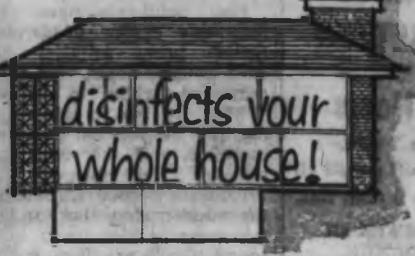 disinfects your
whole house!